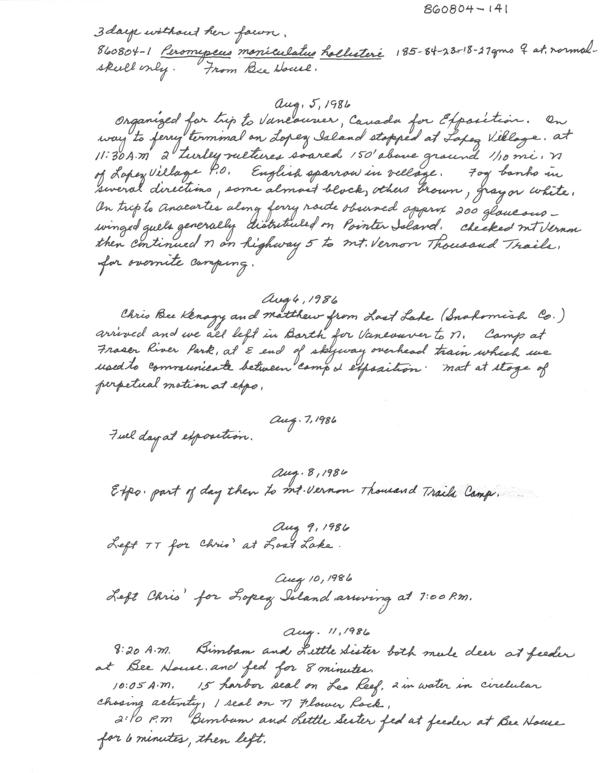 860804-141
3 days without her fawn.
860804-1 Peromyscus maniculatus hollisteri 185-84-23-18-27gms ♀ at. normal-
skull only. From Bee House.
Aug. 5, 1986
Organized for trip to Vancouver, Canada for Exposition. On
way to ferry terminal on Lopez Island stopped at Lopez Village. at
11:30 A.M 2 turkey vultures soared 150' above ground 1/10 mi. N
of Lopez Village P.O. English sparrow in village. Fog banks in
several directions, some almost black, others brown, gray or white.
On trip to Anacortes along ferry route observed approx 200 glaucous-
winged gulls generally distributed on Pointer Island. Checked Mt Vernon
then continued N on highway 5 to Mt. Vernon Thousand Trails.
for overnite camping.
Aug 6, 1986
Chris Bee Kenagy and Matthew from Lost Lake (Snohomish Co.)
arrived and we all left in Barth for Vancouver to N. Camp at
Fraser River Park, at E end of skyway overhead train which we
used to communicate between camp & exposition. Mat at stage of
perpetual motion at expo.
Aug. 7, 1986
Full day at exposition.
Aug. 8, 1986
Expo. part of day then to Mt. Vernon Thousand Trails Camp.
Aug 9, 1986
Left TT for Chris' at Lost Lake.
Aug 10, 1986
Left Chris' for Lopez Island arriving at 7:00 P.M.
Aug. 11, 1986
8:20 A.M. Bimbam and Little Sister both mule deer at feeder
at Bee House. and fed for 8 minutes.
10:05 A.M. 15 harbor seal on Leo Reef, 2 in water in circular
chasing activity, 1 seal on N Flower Rock.
2:10 P.M Bimbam and Little Sister fed at feeder at Bee House
for 6 minutes, then left.